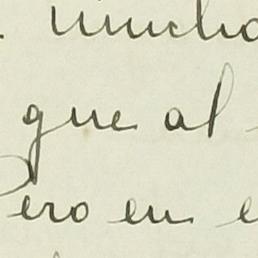 mucho
que al
Pero en e